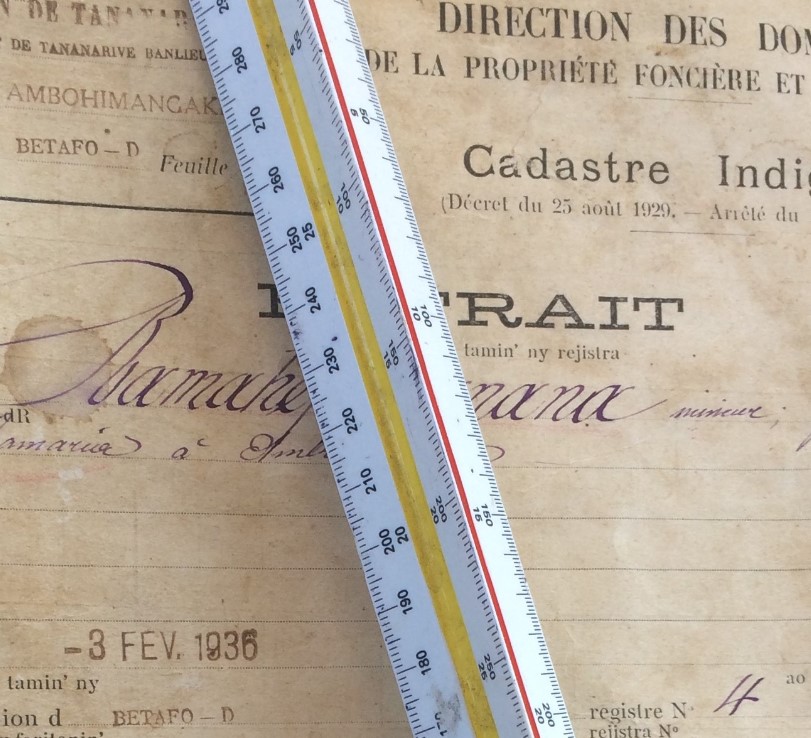 N DE TANANAR
DIRECTION DES DOM
DE TANANARIVE BANLIEU
DE LA PROPRIÉTÉ FONCIÈRE ET
AMBOHIMANGAK
BETAFO - D Feuille
Cadastre Indig
(Décret du 25 août 1929. — Arrêté du
TRAIT
tamin' ny rejistra
mineur;
dR
amaria à
- 3 FEV. 1936
tamin' ny
ao
registre N° 4
ion d BETAFO - D
rejistra N°
280
270
260
250 25
240
230
220
210
200 20
190
180
50 5
100 10
150 15
200 20
50 5
100 10
150 15
200 20
250 25